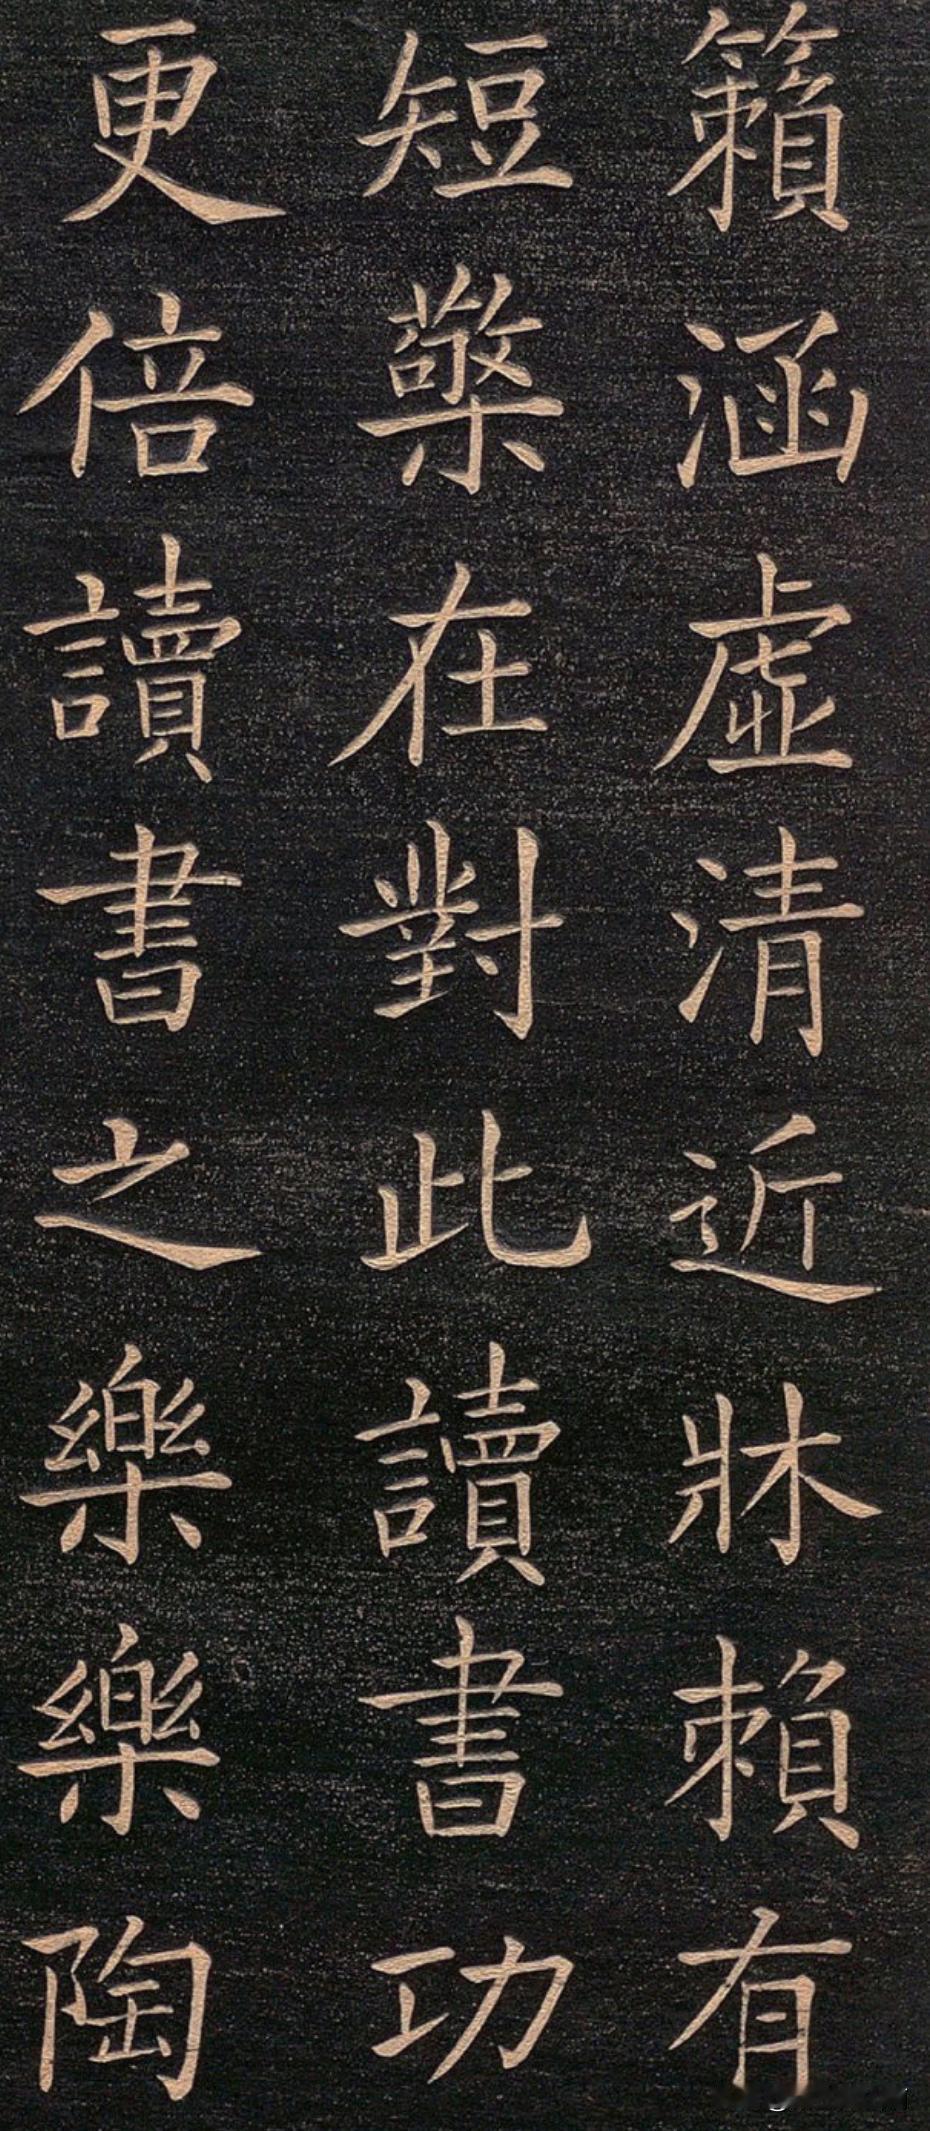 籟涵虛清近牀賴有
短檠在對此讀書功
更倍讀書之樂樂陶